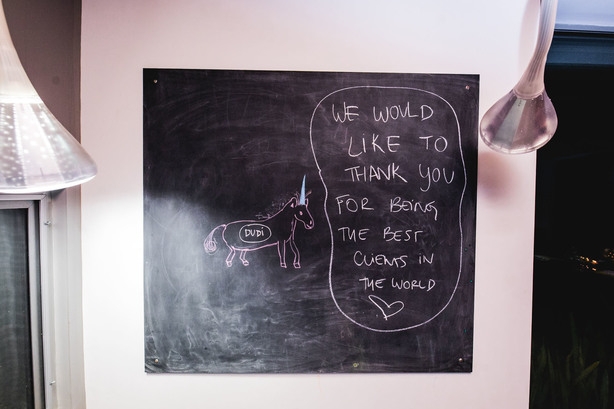 WE WOULD
LIKE TO
THANK YOU
FOR BEING
THE BEST
CLIENTS IN
THE WORLD
DUDI